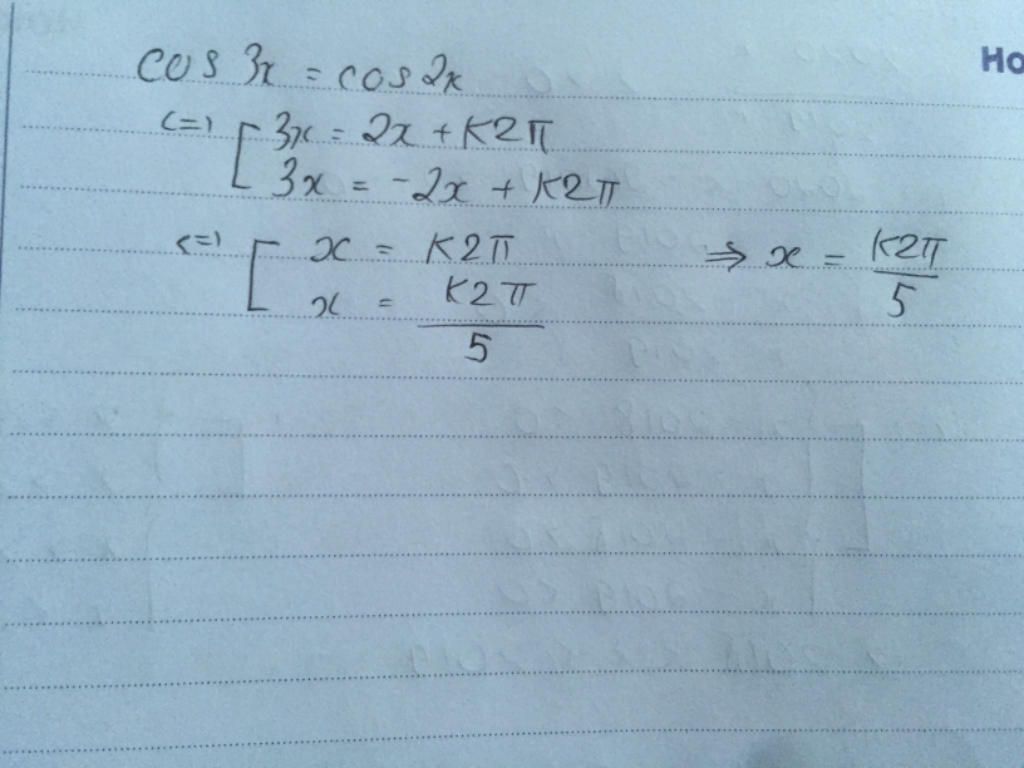 cos 3x = cos 2x
Ho
<=> [ 3x = 2x + k2π
3x = -2x + k2π
<=> [ x = k2π
x = k2π/5 => x = k2π/5